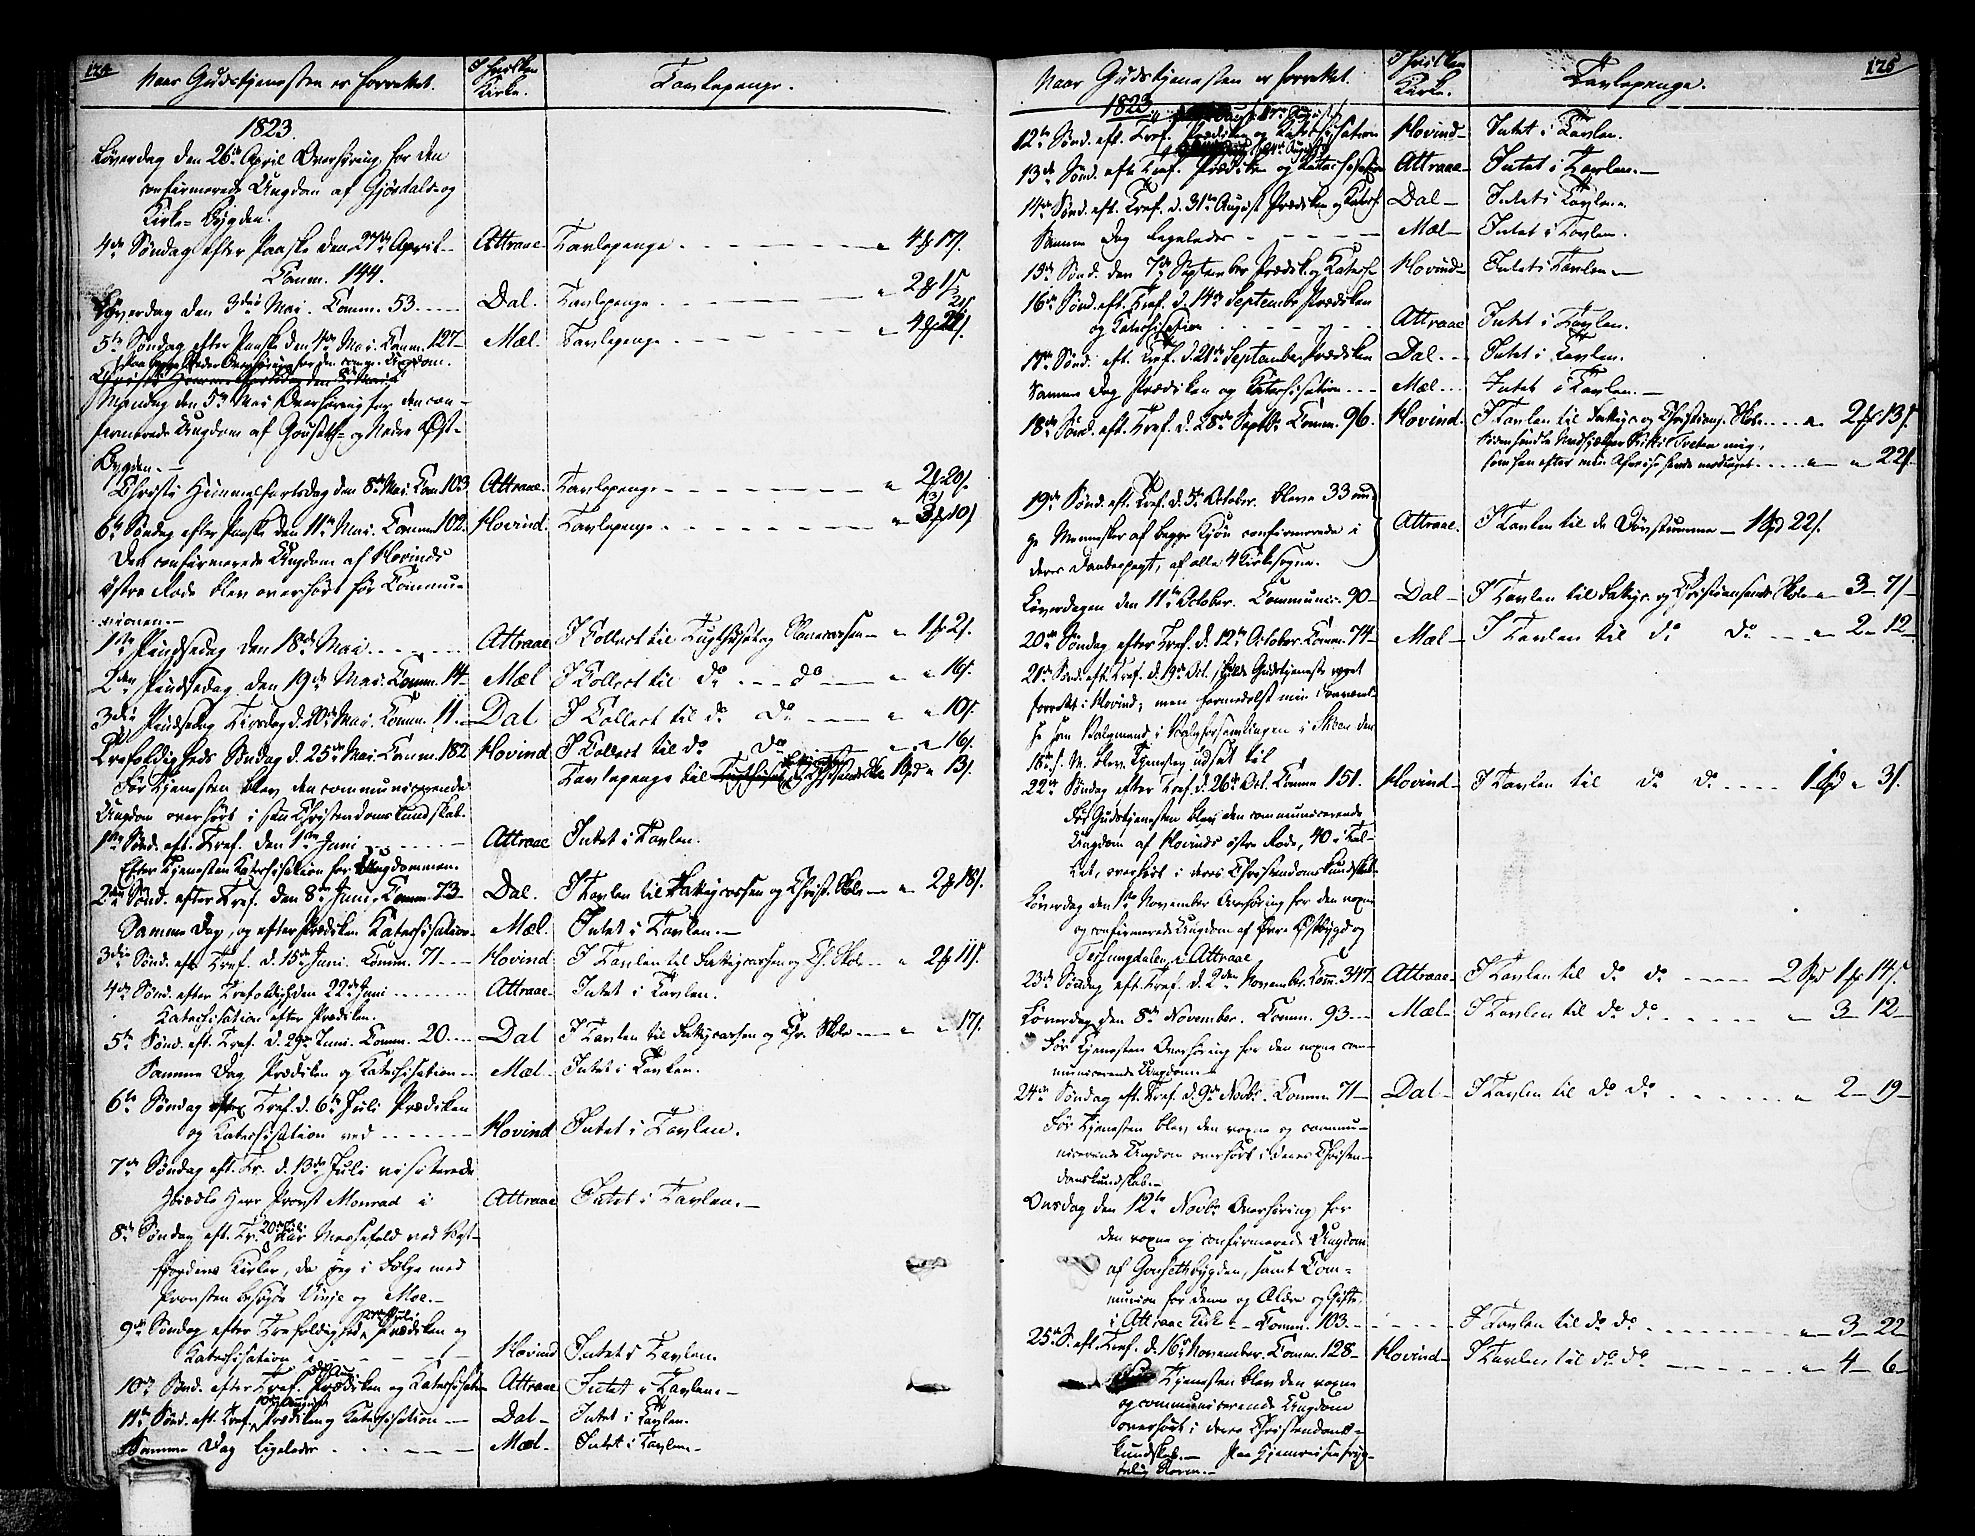 124
Naar Gudstjenesten er forrettet. I hvilken Kirke. Tavlepenge.
1823.
Løverdag den 26de April Overhøring for den
confirmerede Ungdom af Gjøsdals og
Kirke-Bygden.
4de Søndag efter Paaske den 27de April Attraae Tavlepenge 4 17
Comm. 144.
Løverdag den 3die Mai. Comm. 53 Dal. Tavlepenge
5te Søndag efter Paaske den 4de Mai. Comm. 127 Mæl. Tavlepenge
Mandag den 5te Mai Overhøring for den con-
firmerede Ungdom af Gouseth- og Nedre Øst-
Bygden.
Christi Himmelfartsdag den 8de Mai. Com. 103 Attraae. Tavlepenge 2 20
6te Søndag efter Paaske den 11te Mai. Comm. 102. Hovind. Tavlepenge
Den confirmerede Ungdom af Hovinds
østre Rode blev overhørt før Commu-
nionen.
1ste Pindsedag den 18de Mai Attraae I Collect til Tugthusetog Slaverarsen 1 2
2den Pindsedag den 19de Mai. Comm. 14 Mæl I Collect til do do 16
3die Pindsedag Tirsdag d. 20de Mai. Comm. 11. Dal I Collect til do do 10
Trefoldigheds Søndag d. 25de Mai. Comm. 182 Hovind I Collect til do do 16
Tavlepenge til
Før Tjenesten blev den communicerende
Ungdom overhørt i sin Christendomskundskab.
1ste Sønd. eft. Tref. den 1ste Juni Attraae Intet i Tavlen.
Efter Tjenesten Katechisation for Ungdommen.
2den Sønd. efter Tref. den 8de Juni. Comm. 73 Dal. I Tavlen til Fattigcassen og Christ. Skole 2 18
Samme Dag, og efter Prædiken Katechisation Mæl. Intet i Tavlen.
3die Sønd. eft. Tref. d. 15de Juni. Comm. 71. Hovind I Tavlen til Fattigcassen og Ch. Skole 2 11
4de Sønd. efter Trefoldigh den 22de Juni Attraae Intet i Tavlen.
Katechisation efter Prædiken.
5te Sønd. eft. Tref. d. 29de Juni. Comm. 20. Dal I Tavlen til Fattigcassen og Chr. Skole 17
Samme Dag Prædiken og Katechisation Mæl Intet i Tavlen.
6te Søndag efter Tref. d. 6te Juli Prædiken
og Katechisation ved Hovind Intet i Tavlen.
7de Søndag eft. Tr. d. 13de Juli visiterede
Herr Provst Monrad i Attraae Intet i Tavlen.
8de Søndag eft. Tr. 20de Juli var Messefald ved Vest-
fjordens Kirker, da jeg i Følge med
Provsten besøgte Vinje og Moe.
9de Søndag efter Trefoldighed, 27de Juli Prædiken og
Katechisation i Hovind Intet i Tavlen.
10de Sønd. efter Tref. Prædiken og Katechisat Attraae Intet i Tavlen
11te Sønd. eft. Tref. 10de August Prædiken og Katechisation Dal Intet i Tavlen.
Samme Dag ligeledes Mæl Intet i Tavlen
125
Naar Gudstjenesten er forrettet. I hvilken Kirke. Tavlepenge.
1823
12te Sønd. eft. Tref. Prædiken og Katechisation Hovind Intet i Tavlen.
13de Sønd. eft. Tref. Prædiken og Katechisation Attraae Intet i Tavlen.
14de Sønd. eft. Tref. d. 31te August Prædiken og Katech. Dal Intet i Tavlen
Samme Dag ligeledes Mæl Intet i Tavlen.
15de Sønd. den 7de September Prædik. og Katech. Hovind Intet i Tavlen
16de Sønd. eft. Tref. d. 14de September Prædiken
og Katechisation Attraae Intet i Tavlen.
17de Sønd. eft. Tref. d. 21de September Prædiken Dal Intet i Tavlen.
Samme Dag Prædiken og Katechisation Mæl Intet i Tavlen.
18de Sønd. eft. Tref. d. 28de Septbr. Comm. 96. Hovind. I Tavlen til Fattige og Christians. Skole 2 13
som han efter min Afreise havde modtaget 22
19de Sønd. eft. Tref. d. 5te October. bleve 33 un-
ge Mennesker af begge Kjøn confirmerede i Attraae. I Tavlen til de Døvstumme 1 Spd 22
deres Daabespagt, af alle 4 Kirkesogne.
Løverdagen den 11te October. Communic. 90 Dal I Tavlen til Fattige. og Christiansands Skole 3 7
20de Søndag efter Tref. d. 12te October. Comm. 74 Mæl I Tavlen til do do 2 12
21de Sønd. eft. Tref. d. 19de Oct. skulde Gudstjeneste været
forrettet i Hovind; men formedelst min Nærværel-
se som Valgmand i Valgforsamlingen i Skien den
18de s. M. blev Tjenesten udsat til
22de Søndag efter Tref. d. 26de Oct. Comm 151. Hovind I Tavlen til do do 1 Spd 3
Før Gudstjenesten blev den communicerende
Ungdom af Hovinds østre Rode, 40 i Tal-
let, overhørt i deres Christendomskundskab.
Løverdag den 1ste November Overhøring for den voxne
og confirmerede Ungdom af Øvre Østbygd og
Tessungdalen, i Attraae
23de Søndag eft. Tref. d. 2den November. Comm. 347 Attraae I Tavlen til do do 2 Spd 1 14
Løverdag den 8de November. Comm. 93 Mæl I Tavlen til do do 3 12
Før Tjenesten Overhøring for den voxne com-
municerende Ungdom.
24de Søndag eft. Tref. d. 9de Novbr. Comm 71 Dal I Tavlen til do do 2 19
Før Tjenesten blev den voxne og commu-
nicerende Ungdom overhørt i deres Christen-
domskundskab.
Onsdag den 12te Novbr. Overhøring for
den voxne og confirmerede Ungdom
af Gousethbygden, samt Com-
munion for denne og Ældre og Gifte
i Attraae Kirke Comm. 103. I Tavlen til do do 3 22
25de S. eft. Tref. d. 16de November. Comm. 128 Hovind I Tavlen til do do 4 6
Tjenesten blev den voxne
og communicerende Ungdom
overhørt i deres Christendoms-
kundskab.